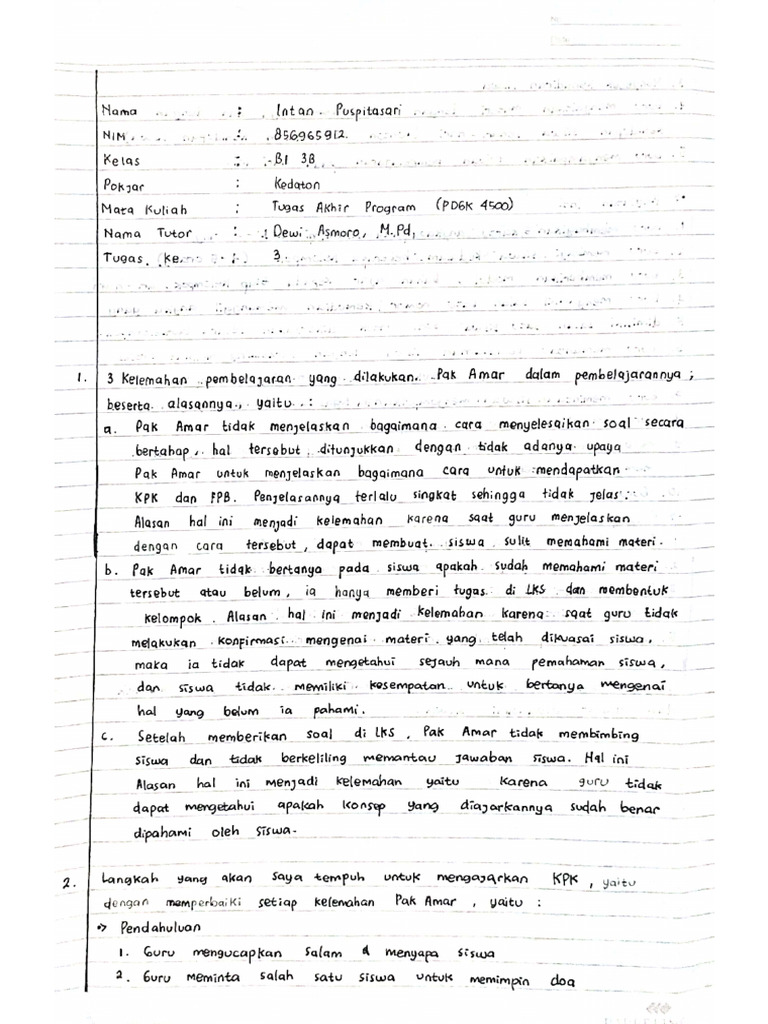 Nama : Intan Puspitasari
NIM : 856965912
Kelas : B.I 3B
Pokjar : Kedaton
Mata Kuliah : Tugas Akhir Program (PDGK 4500)
Nama Tutor : Dewi Asmoro, M.Pd,
Tugas Ke : 3
1. 3 Kelemahan pembelajaran yang dilakukan Pak Amar dalam pembelajarannya,
beserta alasannya, yaitu :
a. Pak Amar tidak menjelaskan bagaimana cara menyelesaikan soal secara
bertahap, hal tersebut ditunjukkan dengan tidak adanya upaya
Pak Amar untuk menjelaskan bagaimana cara untuk mendapatkan
KPK dan FPB. Penjelasannya terlalu singkat sehingga tidak jelas.
Alasan hal ini menjadi kelemahan karena saat guru menjelaskan
dengan cara tersebut, dapat membuat siswa sulit memahami materi.
b. Pak Amar tidak bertanya pada siswa apakah sudah memahami materi
tersebut atau belum, ia hanya memberi tugas di LKS dan membentuk
kelompok. Alasan hal ini menjadi kelemahan karena saat guru tidak
melakukan konfirmasi mengenai materi yang telah dikuasai siswa,
maka ia tidak dapat mengetahui sejauh mana pemahaman siswa,
dan siswa tidak memiliki kesempatan untuk bertanya mengenai
hal yang belum ia pahami.
c. Setelah memberikan soal di LKS, Pak Amar tidak membimbing
siswa dan tidak berkeliling memantau jawaban siswa. Hal ini
Alasan hal ini menjadi kelemahan yaitu karena guru tidak
dapat mengetahui apakah konsep yang diajarkannya sudah benar
dipahami oleh siswa.
2. Langkah yang akan saya tempuh untuk mengajarkan KPK, yaitu
dengan memperbaiki setiap kelemahan Pak Amar, yaitu :
-> Pendahuluan
1. Guru mengucapkan salam & menyapa siswa
2. Guru meminta salah satu siswa untuk memimpin doa